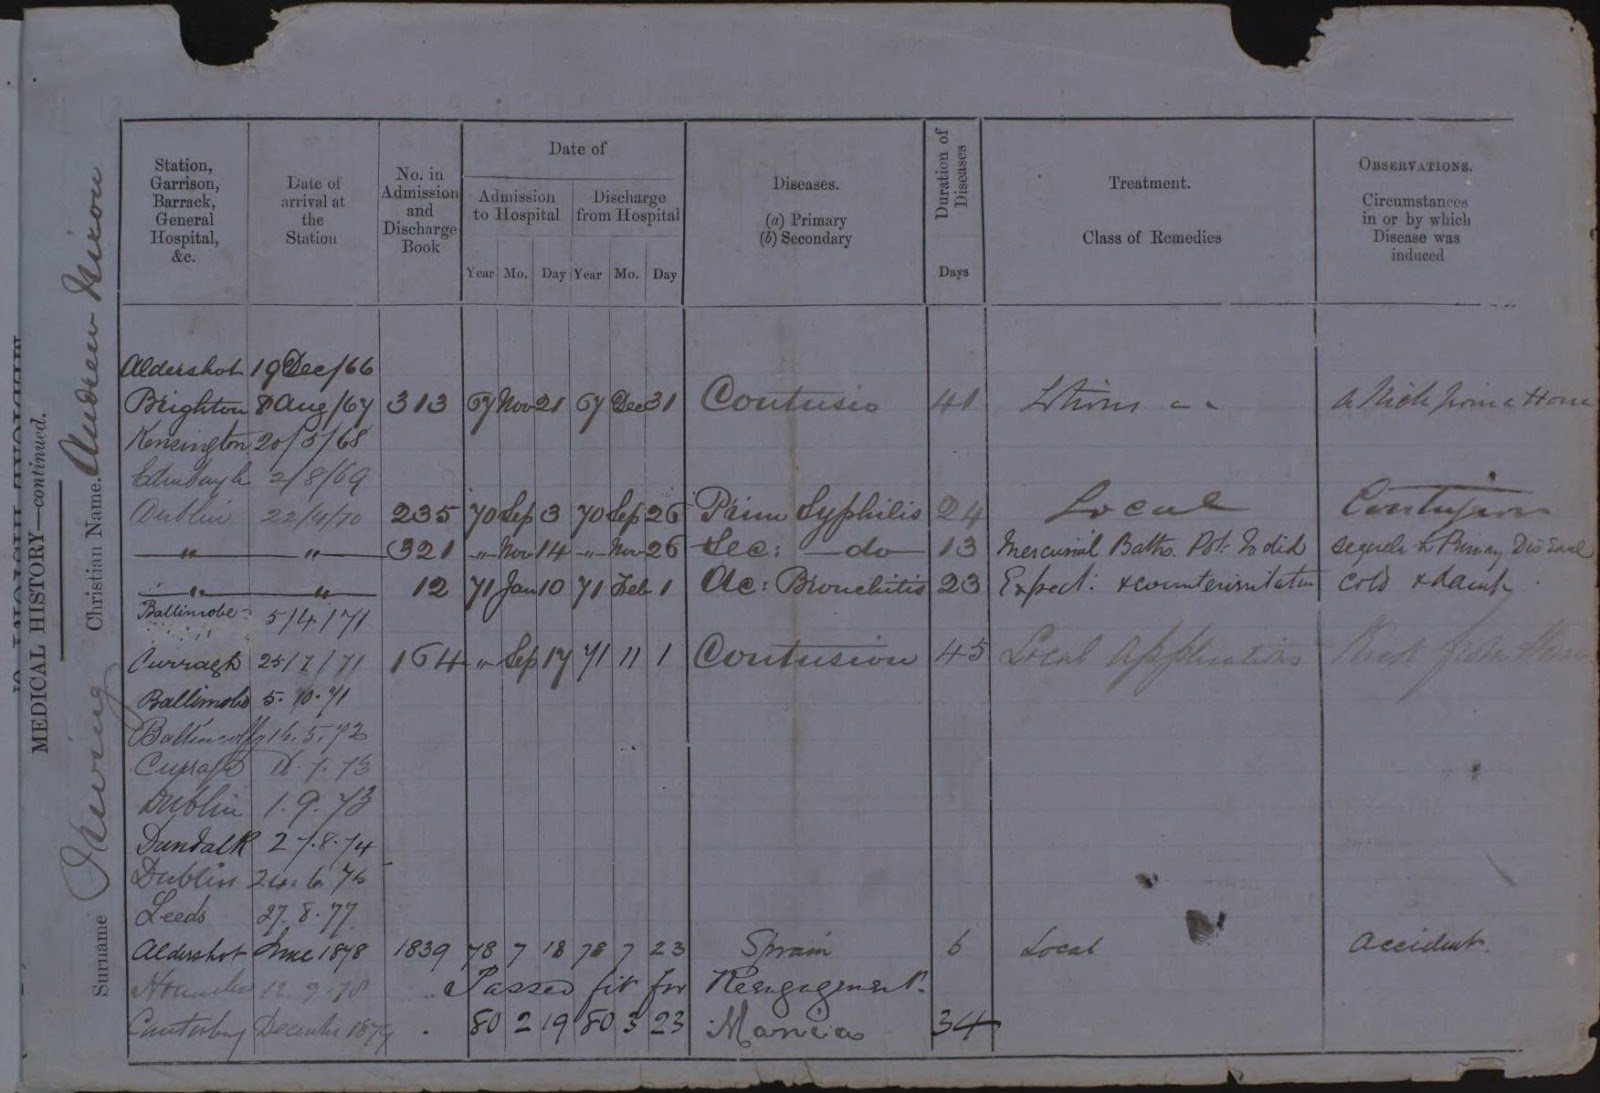 MEDICAL HISTORY—continued.
Surname Irving Christian Name. Andrew Nixon
Station, Garrison, Barrack, General Hospital, &c.
Date of arrival at the Station
No. in Admission and Discharge Book
Date of
Admission to Hospital
Discharge from Hospital
Year Mo. Day Year Mo. Day
Diseases.
(a) Primary
(b) Secondary
Duration of Diseases
Days
Treatment.
Class of Remedies
OBSERVATIONS.
Circumstances in or by which Disease was induced
Aldershot 19 Dec/66
Brighton 8 Aug/67 313 67 Nov 21 67 Dec 31 Contusio 41 a Kick from a Horse
Kensington 20/5/68
Edinburgh 2/8/69
Dublin 22/4/70 235 70 Sep 3 70 Sep 26 Prim Syphilis 24 Local Contagion
—"— —"— 321 -"- Nov 14 -"- Nov 26 Sec: —do— 13 Mercurial Baths Pot: Iodid sequela to Primary Disease
—"— —"— 12 71 Jan 10 71 Feb 1 Ac: Bronchitis 23 Expect: & counterirritation cold & damp
Ballinrobe 5/4/71
Curragh 25/7/71 164 " Sep 17 71 11 1 Contusion 45 Local applications Kick from Horse
Ballinrobe 5.10.71
Ballincollig 16.5.72
Curragh 7.73
Dublin 1.9.73
Dundalk 27.8.74
Dublin 24.6.75
Leeds 27.8.77
Aldershot June 1878 1839 78 7 18 78 7 23 Sprain 6 Local Accident.
Hounslow 12.9.78 Passed fit for Reengagement.
Canterbury December 1879 80 2 19 80 3 23 Mania 34